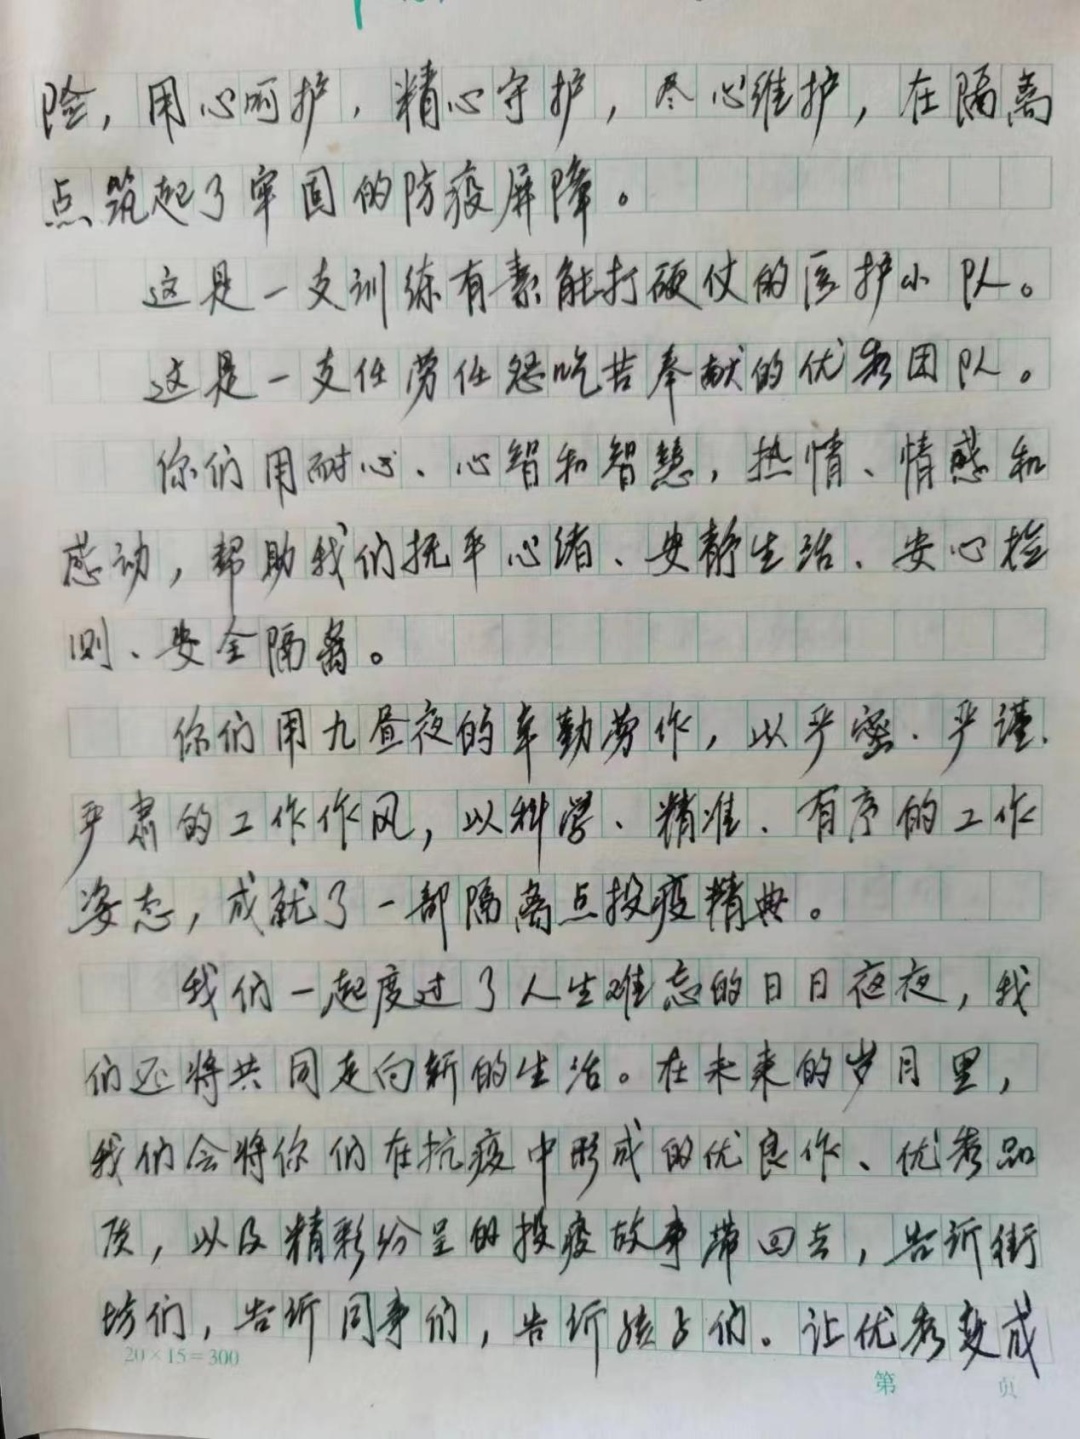 险，用心呵护，精心守护，尽心维护，在隔离
点筑起了牢固的防疫屏障。
这是一支训练有素能打硬仗的医护小队。
这是一支任劳任怨吃苦奉献的优秀团队。
你们用耐心、心智和智慧，热情、情感和
感动，帮助我们抚平心绪、安静生活、安心检
测、安全隔离。
你们用九昼夜的辛勤劳作，以严密、严谨、
严肃的工作作风，以科学、精准、有序的工作
姿态，成就了一部隔离点投疫精典。
我们一起度过了人生难忘的日日夜夜，我
们还将共同走向新的生活。在未来的岁月里，
我们会将你们在抗疫中形成的优良作、优秀品
质，以及精彩纷呈的投疫故事带回去，告诉街
坊们，告诉同事们，告诉孩子们。让优秀变成
20×15=300
第 页